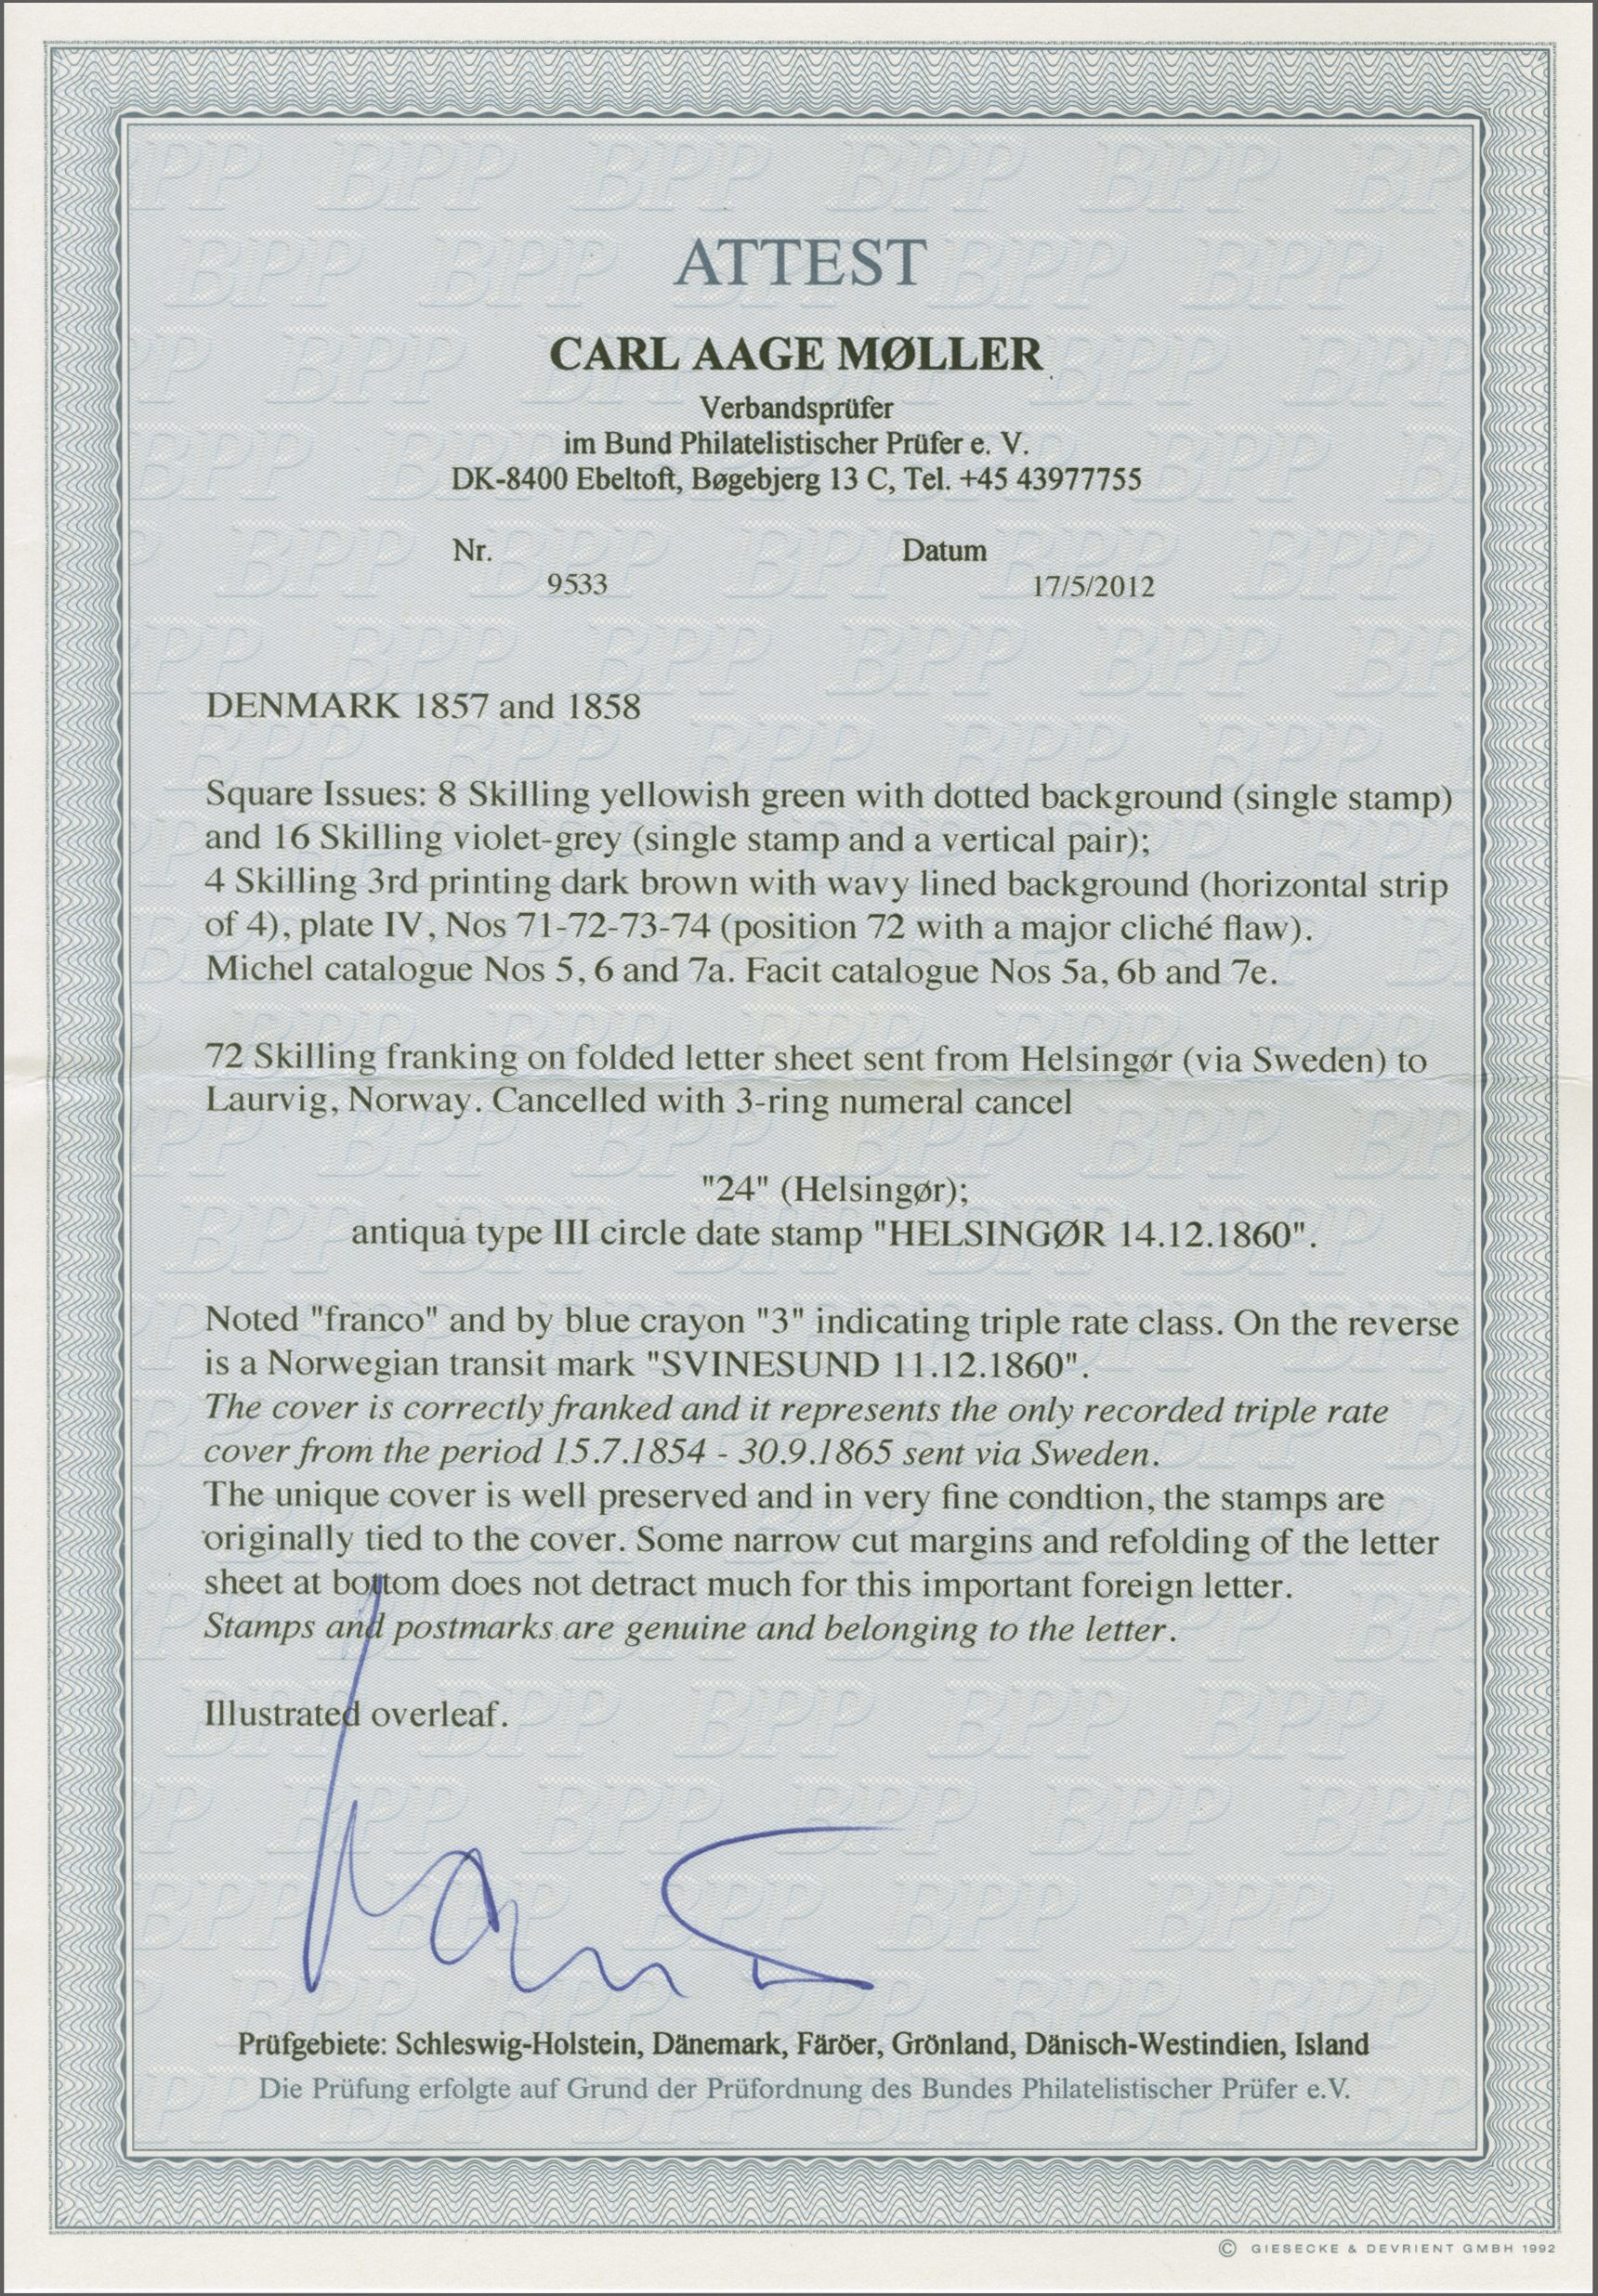 ATTEST
CARL AAGE MØLLER
Verbandsprüfer
im Bund Philatelistischer Prüfer e. V.
DK-8400 Ebeltoft, Bøgebjerg 13 C, Tel. +45 43977755
Nr. Datum
9533 17/5/2012
DENMARK 1857 and 1858
Square Issues: 8 Skilling yellowish green with dotted background (single stamp)
and 16 Skilling violet-grey (single stamp and a vertical pair);
4 Skilling 3rd printing dark brown with wavy lined background (horizontal strip
of 4), plate IV, Nos 71-72-73-74 (position 72 with a major cliché flaw).
Michel catalogue Nos 5, 6 and 7a. Facit catalogue Nos 5a, 6b and 7e.
72 Skilling franking on folded letter sheet sent from Helsingør (via Sweden) to
Laurvig, Norway. Cancelled with 3-ring numeral cancel
"24" (Helsingør);
antiqua type III circle date stamp "HELSINGØR 14.12.1860".
Noted "franco" and by blue crayon "3" indicating triple rate class. On the reverse
is a Norwegian transit mark "SVINESUND 11.12.1860".
The cover is correctly franked and it represents the only recorded triple rate
cover from the period 15.7.1854 - 30.9.1865 sent via Sweden.
The unique cover is well preserved and in very fine condtion, the stamps are
originally tied to the cover. Some narrow cut margins and refolding of the letter
sheet at bottom does not detract much for this important foreign letter.
Stamps and postmarks are genuine and belonging to the letter.
Illustrated overleaf.
Prüfgebiete: Schleswig-Holstein, Dänemark, Färöer, Grönland, Dänisch-Westindien, Island
Die Prüfung erfolgte auf Grund der Prüfordnung des Bundes Philatelistischer Prüfer e.V.
© GIESECKE & DEVRIENT GMBH 1992